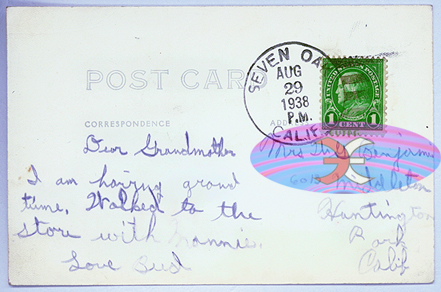 POST CARD
CORRESPONDENCE
SEVEN OA
AUG
29
1938
P.M.
CALIF
UNITED STATES POSTAGE
1 CENT 1
Dear Grandmother
I am having grand
time. Walked to the
store with Nannie.
Love Bud
Mrs
Middleton
Huntington
Park
Calif